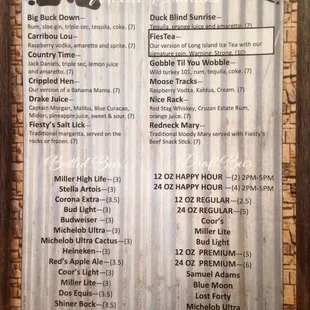 Big Buck Down—
Rum, sloe gin, triple sec, tequila, coke. (7)
Carribou Lou—
Raspberry vodka, amaretto and sprite. (7)
Country Time—
Jack Daniels, triple sec, lemon juice
and amaretto. (7)
Crippled Hen—
Our version of a Bahama Mama. (7)
Drake Juice—
Captain Morgan, Malibu, Blue Curacao,
Midori, pineapple juice, sweet & sour. (7)
Fiesty's Salt Lick—
Traditional margarita, served on the
rocks or frozen. (7)
Duck Blind Sunrise—
Tequila, orange juice and amaretto. (7)
FiesTea—
Our version of Long Island Ice Tea with our
signature spin. Warning: Strong. (10)
Gobble Til You Wobble—
Wild turkey 101, rum, tequila, coke. (7)
Moose Tracks—
Raspberry Vodka, Kahlua, Cream. (7)
Nice Rack—
Red Stag Whiskey, Cruzan Estate Rum,
orange juice. (7)
Redneck Mary—
Traditional bloody Mary served with Fiesty's
Beef Snack Stick. (7)
Bottled Beer
Miller High Life—(3)
Stella Artois—(3)
Corona Extra—(3.5)
Bud Light—(3)
Budweiser—(3)
Michelob Ultra—(3)
Michelob Ultra Cactus—(3)
Heineken—(3)
Red's Apple Ale—(3.5)
Coor's Light—(3)
Miller Lite—(3)
Dos Equis—(3.5)
Shiner Bock—(3.5)
Draft Beer
12 OZ HAPPY HOUR —(2) 2PM-5PM
24 OZ HAPPY HOUR —(4) 2PM-5PM
12 OZ REGULAR—(2.5)
24 OZ REGULAR—(5)
Coor's
Miller Lite
Bud Light
12 OZ PREMIUM—(5)
24 OZ PREMIUM—(6)
Samuel Adams
Blue Moon
Lost Forty
Michelob Ultra